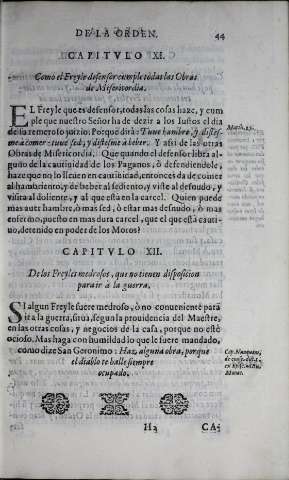 DE LA ORDEN.
44
CAPITVLO XI.
Como el Freyle defensor cumple todas las Obras
de Misericordia.
EL Freyle que es defensor, todas las cosas haze, y cum
ple que nuestro Señor ha de dezir a los Iustos el dia
de la remero juizio. Porque dirà: Tuue hambre, y distes
me à comer: tuue sed, y distesme à beber. Y assi de las otras
Obras de Misericordia. Que quando el defensor libra al
guno de la cautiuidad de los Paganos, ò defendiendole,
haze que no lo lleuen en cautiuidad, entonces dà de comer
al hambriento, y de beber al sediento, y viste al desnudo, y
visita al doliente, y al que està en la carcel. Quien puede
mas auer hambre, ò mas sed, ò estar mas desnudo, ò mas
enfermo, puesto en mas dura carcel, que el que està cauti-
uo, detenido en poder de los Moros?
Math. 25.
CAPITVLO XII.
De los Freyles medrosos, que no tienen disposicion
para ir à la guerra.
SI algun Freyle fuere medroso, ò no conueniente para
ir a la guerra, sirua, segun la prouidencia del Maestre,
en las otras cosas, y negocios de la casa, porque no estè
ocioso. Mas haga con humildad lo que le fuere mandado,
como dize San Geronimo: Haz alguna obra, porque
el diablo te halle siempre
ocupado.
Cap. Nunquam,
de consec. dist. 5.
H2
CA-